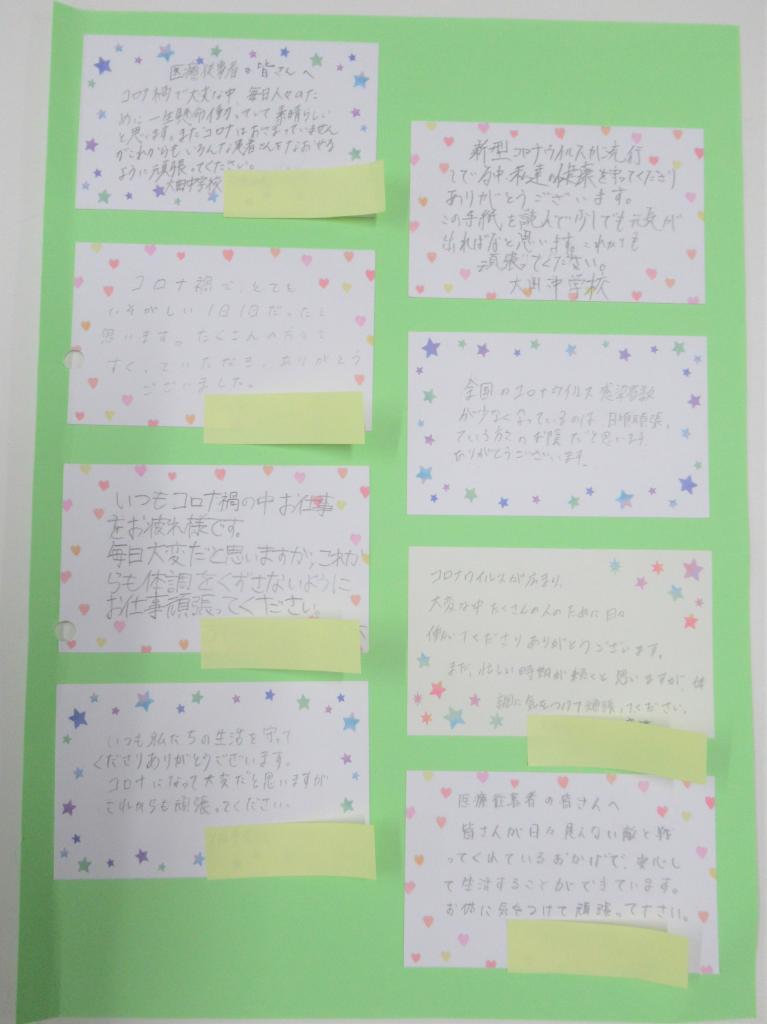 医療従事者の皆さんへ
コロナ禍で大変な中、毎日人々のた
めに一生懸命働いていて素晴らしい
と思います。またコロナはおさまっていません
がこれからもいろんな患者さんをなおせる
ように頑張ってください。
大田中学校
コロナ禍で、とても
いそがしい1日1日だったと
思います。たくさんの方々を
すくっていただき、ありがとう
ございました。
いつもコロナ禍の中お仕事
をお疲れ様です。
毎日大変だと思いますが、これか
らも体調をくずさないように
お仕事頑張ってください。
いつも私たちの生活を守って
くださりありがとうございます。
コロナになって大変だと思いますが
これからも頑張ってください。
新型コロナウイルスが流行
している中私達の健康を守ってくださり
ありがとうございます。
この手紙を読んで少しでも元気が
出ればなと思います。これからも
頑張ってください。
大田中学校
全国のコロナウイルス感染者数
が少なくなっているのは、日頃頑張っ
ている方々のお陰だと思います。
ありがとうございます。
コロナウイルスが広まり、
大変な中たくさんの人のために日々
働いてくださりありがとうございます。
まだ、忙しい時期が続くと思いますが、体
調に気をつけて頑張ってください。
医療従事者の皆さんへ
皆さんが日々見えない敵と戦
ってくれているおかげで、安心し
て生活することができています。
お体に気をつけて頑張って下さい。